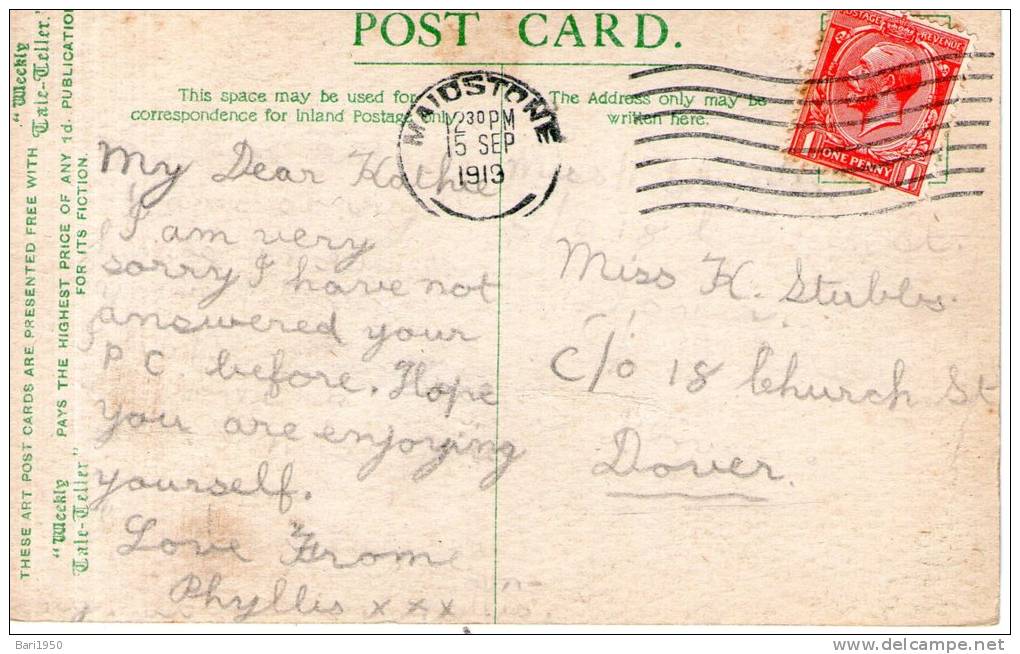 POST CARD.
This space may be used for
correspondence for Inland Postage only.
The Address only may be
written here.
MAIDSTONE
1230 PM
15 SEP
1919
POSTAGE REVENUE
1 ONE PENNY 1
THESE ART POST CARDS ARE PRESENTED FREE WITH "Weekly Tale-Teller."
"Weekly Tale-Teller" PAYS THE HIGHEST PRICE OF ANY 1d. PUBLICATION
FOR ITS FICTION.
My Dear Kathie
I am very
sorry I have not
answered your
P C. before. Hope
you are enjoying
yourself.
Love From
Phyllis x x x
Miss K. Stubbs.
c/o 18 Church St
Dover.
Bari1950
delcampe.net